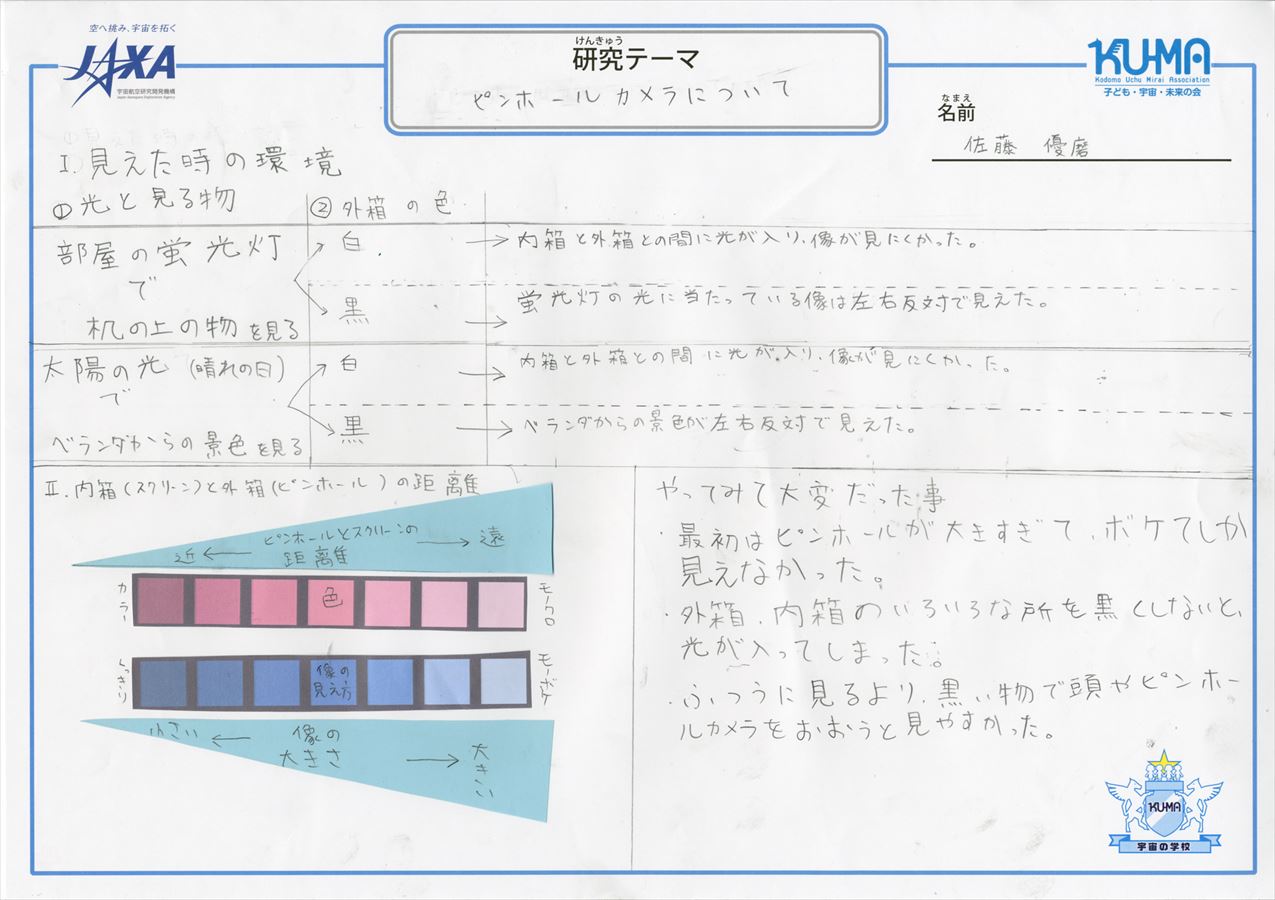 空へ挑み、宇宙を拓く
JAXA
宇宙航空研究開発機構
Japan Aerospace Exploration Agency
けんきゅう
研究テーマ
ピンホールカメラについて
KU-MA
Kodomo Uchu Mirai Association
子ども・宇宙・未来の会
なまえ
名前
佐藤 優磨
I. 見えた時の環境
①光と見る物
②外箱の色
部屋の蛍光灯
で
机の上の物を見る
白 → 内箱と外箱との間に光が入り、像が見にくかった。
黒 → 蛍光灯の光に当たっている像は左右反対で見えた。
太陽の光(晴れの日)
で
ベランダからの景色を見る
白 → 内箱と外箱との間に光が入り、像が見にくかった。
黒 → ベランダからの景色が左右反対で見えた。
II. 内箱(スクリーン)と外箱(ピンホール)の距離
ピンホールとスクリーンの
近 ← 距離 → 遠
カラー
色
モノクロ
くっきり
像の
見え方
ボケ
小さい ← 像の
大きさ → 大きい
やってみて大変だった事
・最初はピンホールが大きすぎて、ボケてしか
見えなかった。
・外箱、内箱のいろいろな所を黒くしないと、
光が入ってしまった。
・ふつうに見るより、黒い物で頭やピンホー
ルカメラをおおうと見やすかった。
KU-MA
宇宙の学校